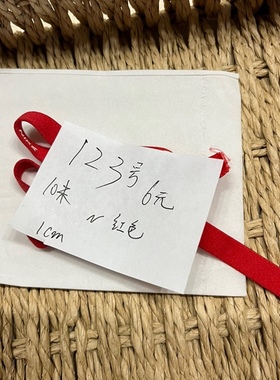 123号
10米 6元
N 红色
1cm